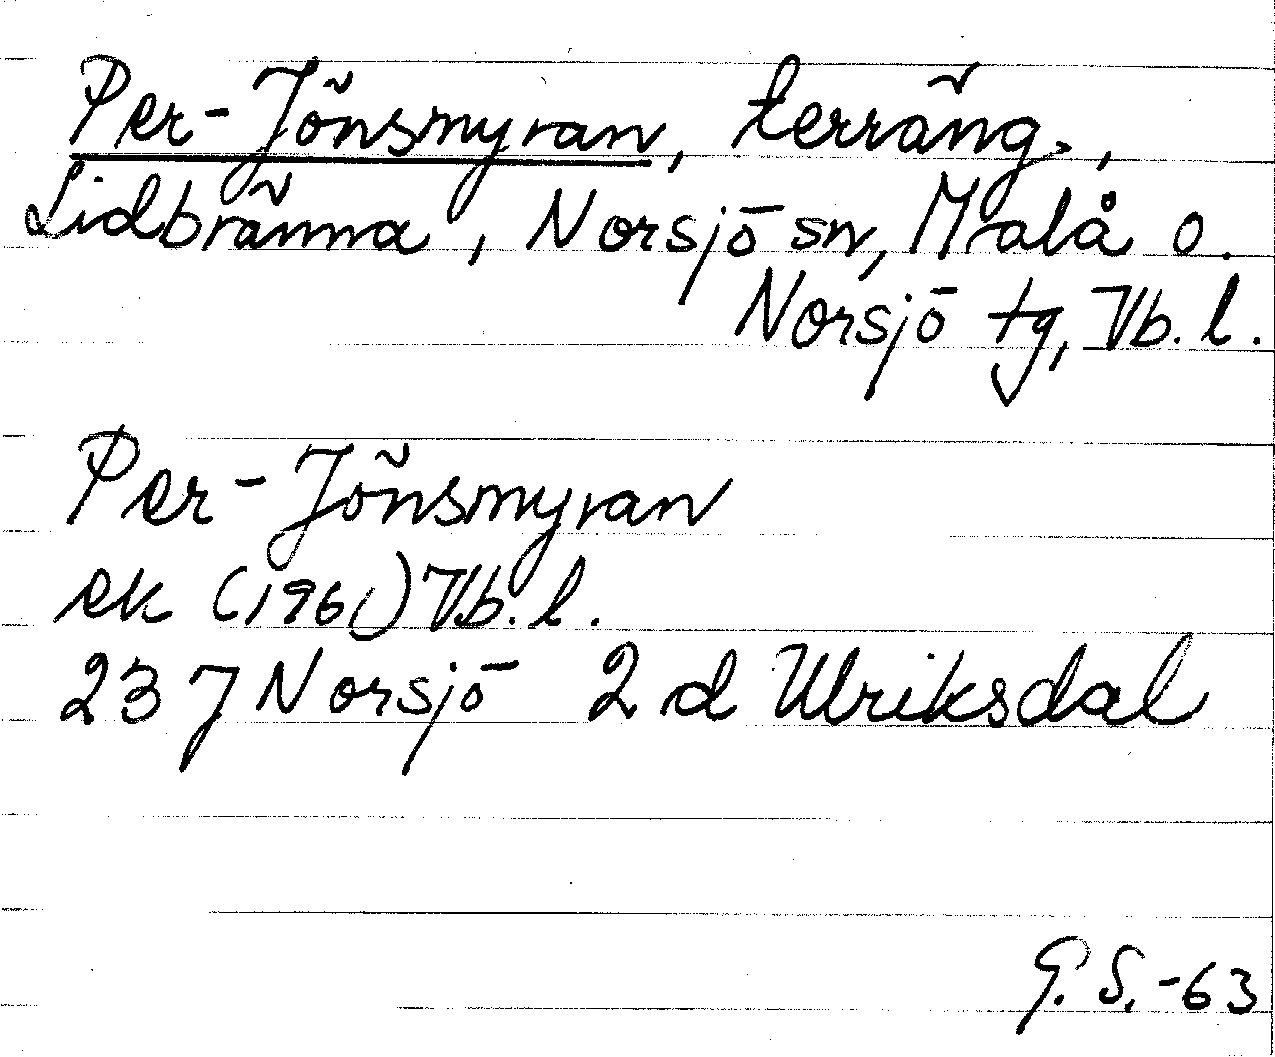 Per-Jönsmyran, terräng.,
Lidbränna, Norsjö sn, Malå o.
Norsjö tg, Vb. l.
Per-Jönsmyran
ek (1961) Vb. l.
23 J Norsjö 2 d Ulriksdal
G. S. -63